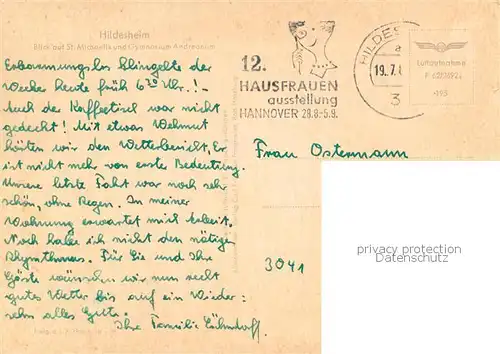 Hildesheim
Blick auf St. Michaelis und Gymnasium Andreanum
Erbarmungslos klingelte der
Wecker heute früh 6 30 Uhr! –
Auch der Kaffeetisch war nicht
gedeckt! Mit etwas Wehmut
hörten wir den Wetterbericht. Er
ist nicht mehr von erster Bedeutung.
Unsere letzte Fahrt war noch sehr
schön, ohne Regen. In meiner
Wohnung erwartet mich Arbeit.
Noch habe ich nicht den nötigen
Rhythmus. Für Sie und Ihre
Gäste wünschen wir nun recht
gutes Wetter bis auf ein Wieder:
sehn alles Gute.
Ihre Familie
12.
HAUSFRAUEN
ausstellung
HANNOVER 28.8.-5.9.
HILDES
a
19.7.6
3
Luftaufnahme
495
Frau Ostermann
3041
privacy protection
www.ansichtskarten-center.de